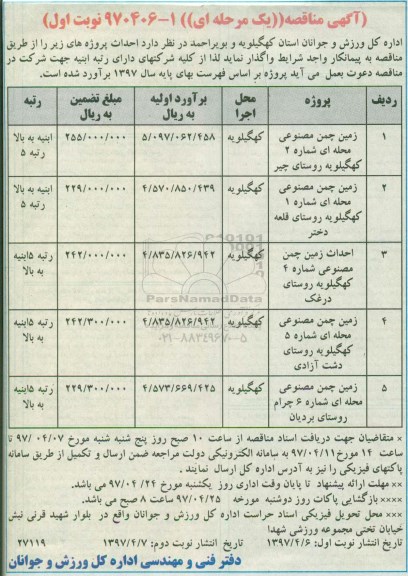 (آگهی مناقصه((یک مرحله ای)) ۱-۹۷۰۴۰۶ نوبت اول)
اداره کل ورزش و جوانان استان کهگیلویه و بویراحمد در نظر دارد احداث پروژه های زیر را از طریق
مناقصه به پیمانکار واجد شرایط واگذار نماید لذا از کلیه شرکتهای دارای رتبه ابنیه جهت شرکت در
مناقصه دعوت بعمل می آید پروژه بر اساس فهرست بهای پایه سال ۱۳۹۷ برآورد شده است.
ردیف پروژه محل اجرا برآورد اولیه به ریال مبلغ تضمین به ریال رتبه
۱ زمین چمن مصنوعی کهگیلویه ۵/۰۹۷/۰۶۲/۴۵۸ ۲۵۵/۰۰۰/۰۰۰ ابنیه به بالا
محله ای شماره ۲ رتبه ۵
کهگیلویه روستای چیر
۲ زمین چمن مصنوعی کهگیلویه ۴/۵۷۰/۸۵۰/۴۳۹ ۲۲۹/۰۰۰/۰۰۰ ابنیه به بالا
محله ای شماره ۱ رتبه ۵
کهگیلویه روستای قلعه
دختر
۳ احداث زمین چمن کهگیلویه ۴/۸۳۵/۸۲۶/۹۴۲ ۲۴۲/۰۰۰/۰۰۰ رتبه ۵ابنیه
مصنوعی شماره ۴ به بالا
کهگیلویه روستای
درغک
۴ زمین چمن مصنوعی کهگیلویه ۴/۸۳۵/۸۲۶/۹۴۲ ۲۴۲/۳۰۰/۰۰۰ رتبه ۵ابنیه
محله ای شماره ۵ به بالا
کهگیلویه روستای
دشت آزادی
۵ زمین چمن مصنوعی کهگیلویه ۴/۵۷۳/۶۶۹/۴۲۵ ۲۲۹/۳۰۰/۰۰۰ رتبه ۵ابنیه
محله ای شماره ۶ چرام به بالا
روستای بردیان
ParsNamadData
۰۲۱-۸۸۳۴۹۶۷۰-۵
× متقاضیان جهت دریافت اسناد مناقصه از ساعت ۱۰ صبح روز پنج شنبه شنبه مورخ ۰۷/ ۰۴ /۹۷ تا
ساعت ۱۴ مورخ۹۷/۰۴/۱۱ به سامانه الکترونیکی دولت مراجعه ضمن ارسال و تکمیل از طریق سامانه
پاکتهای فیزیکی را نیز به آدرس اداره کل ارسال نمایند .
×× مهلت ارائه پیشنهاد تا پایان وقت اداری روز یکشنبه مورخ ۲۴ /۹۷/۰۴ می باشد.
×××× بازگشایی پاکات روز دوشنبه مورخه ۹۷/۰۴/۲۵ ساعت ۸ صبح می باشد.
××× محل تحویل فیزیکی اسناد حراست اداره کل ورزش و جوانان واقع در بلوار شهید قرنی نبش
خیابان تختی مجموعه ورزشی شهدا
تاریخ انتشار نوبت اول: ۱۳۹۷/۴/۶ تاریخ انتشار نوبت دوم: ۱۳۹۷/۴/۷ ۲۷۱۱۹
دفتر فنی و مهندسی اداره کل ورزش و جوانان